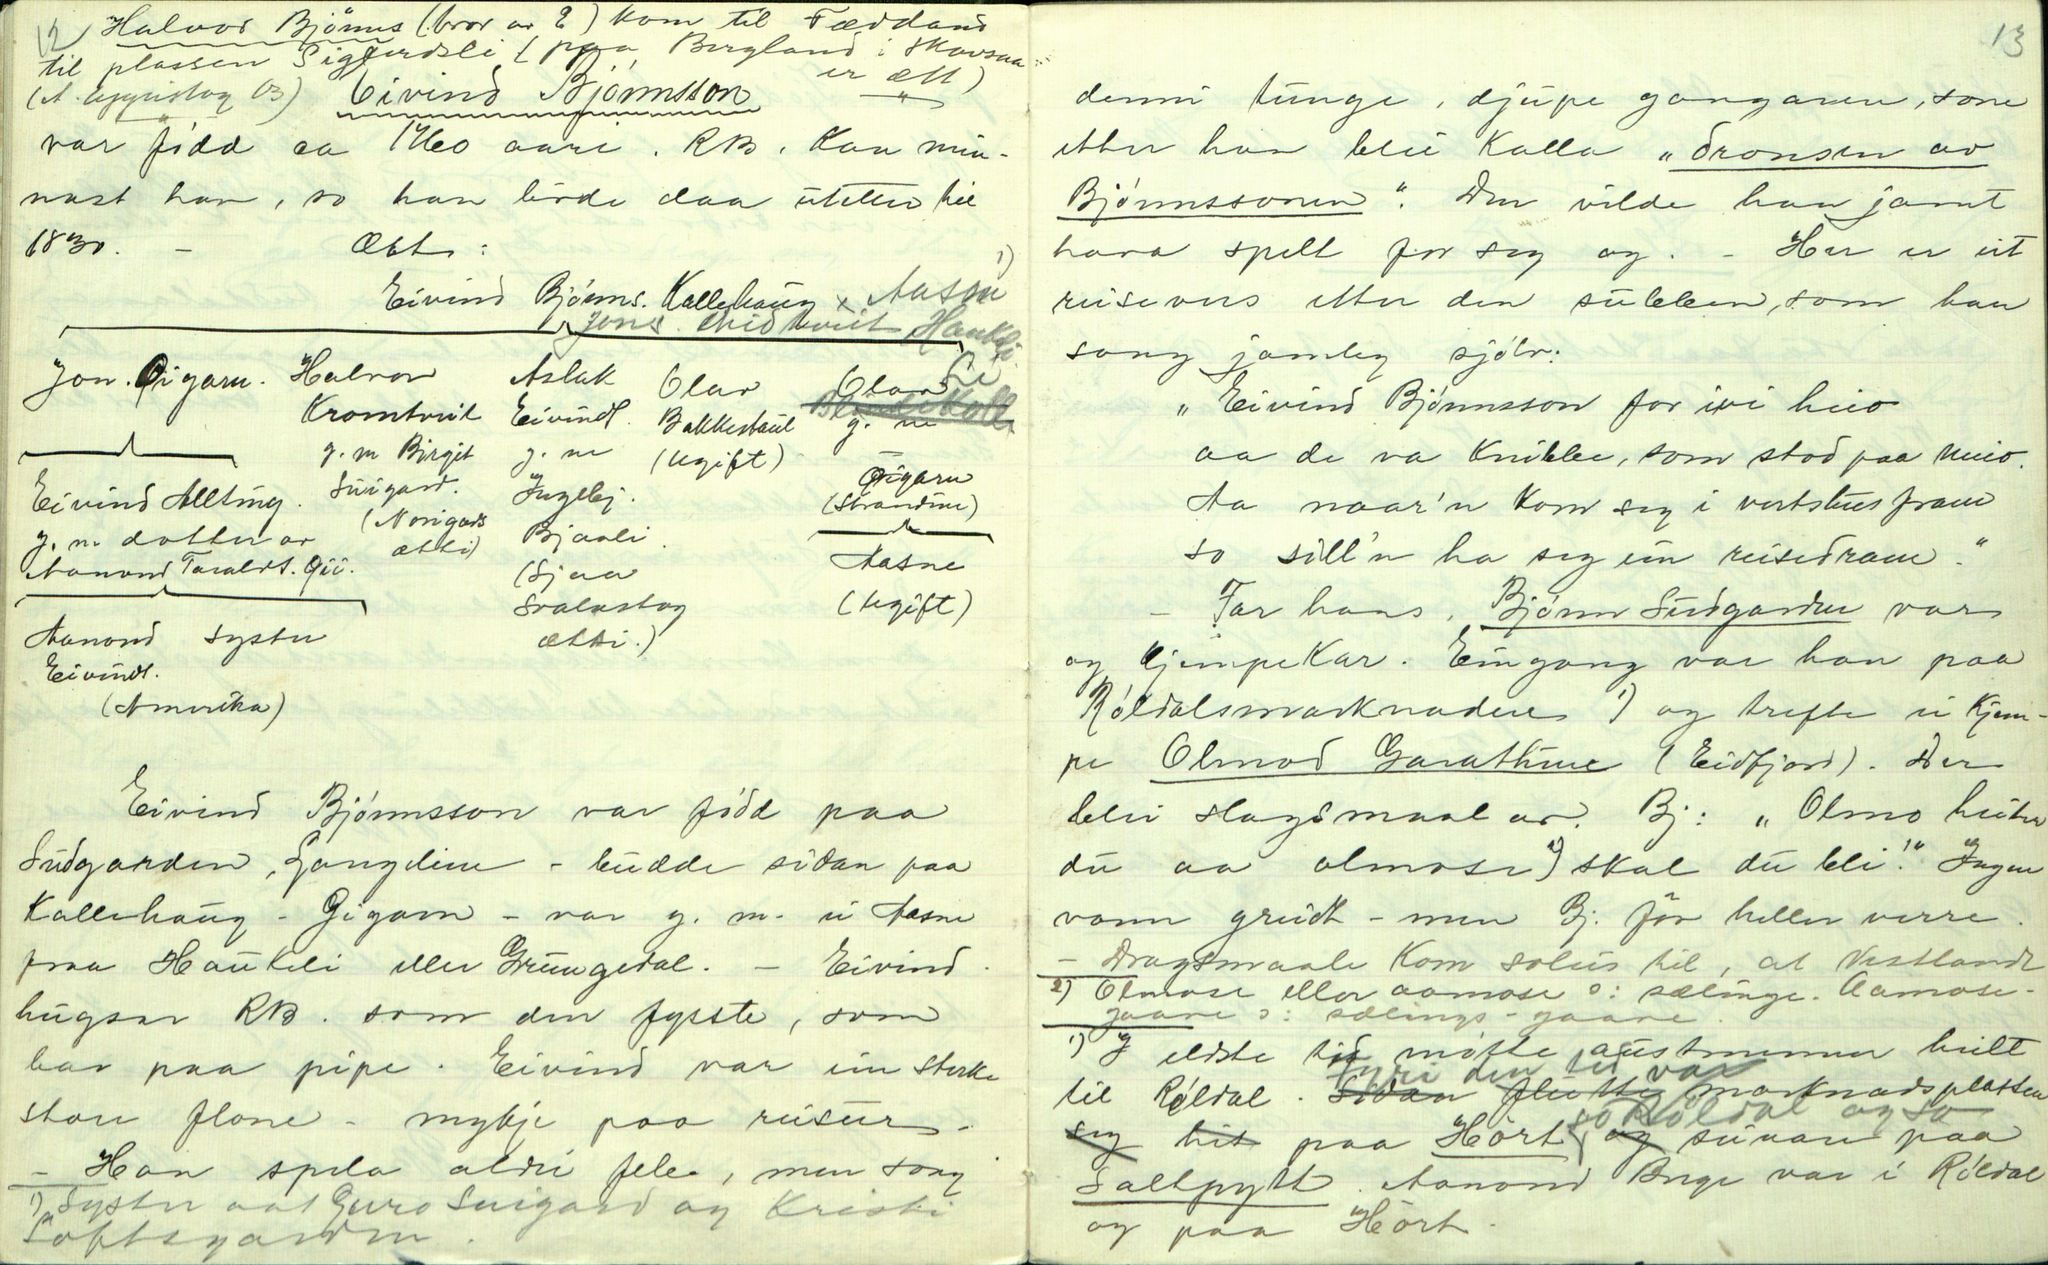 12 Halvor Bjönns (bror av E) kom til Fæddand
til plassen Sigurdsli (paa Bergland i Skavsaa
er ætt)
(A. Uppistog 03) Eivind Bjönnsson
var född ca 1760 aari. RB. kan min-
nast han, so han livde daa utetter til
1830. - Ætt:
Eivind Bjönns. Kallehaug x Aasne 1)
Jons. Midtveit Haukeli
Jon Gigarn. Halvor Aslak Olav Olav
Kromtveit Eivindt. Bakkestaul g. m
g. m Birgit g. m (Ugift) Gigarn
Suigard. Ingebj. (Strandine)
Eivind Allting. (Norigards Bjaali Aasne
g. m. dotter av ætti) (Sjaa (Ugift)
Aanond Taraldt. Gii. Svalastog
Aanond Syster ætti.)
Eivindt.
(Amerika)
Eivind Bjönnsson var född paa
Sudgarden, Songdine - budde sidan paa
Kallehaug - Gigarn - var g. m. ei Aasne
fraa Haukeli eller Grungedal. - Eivind
hugsar RB. som den fyrste, som
bar paa pipe. Eivind var ein sterke
stor flone - mykje paa reisur.
- Han spela aldri fele, men song
1) Syster aat Guro Suigard og Kristi
Loftsgarden.
13
denni tunge, djupe gangaren, sone
etter han blei kalla "Dronsen av
Bjönnssonen". Den vilde han jamt
hava spelt for seg og. - Her er eit
reisevers etter den sullen, som han
song jamleg sjölv:
"Eivind Bjönnsson for ivi heio
aa de va knibbe, som stod paa neio.
Aa naar'n kom seg i vertshus fram
so sill'n ha seg ein reisedram."
- Far hans, Bjönn Sudgarden var
og kjempekar. Eingong var han paa
Röldalsmarknaden 1) og trefte ei kjem-
pe Olmod Garathun (Eidfjord). Der
blei slagsmaal av. Bj: "Olmo heiter
du aa olmose 2) skal du bli!" Ingen
vann greidt - men Bj. för heller verre.
- Dragsmaale kom soleis til, at Vestlandt
2) Olmose eller aamose ɔ: sælinge. Aamose-
gaave ɔ: sælings-gaave.
1) I eldste tid mötte austmennar heilt
til Röldal. Sidan flutte fyri den tid var marknadsplassen
seg hit paa Hört, so Röldal og so og suvan paa
Saltpytt. Aanond Inge var i Röldal
og paa Hört.